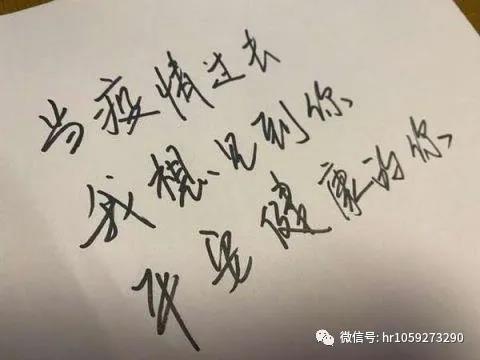 当疫情过去
我想见到你
平安健康的你
微信号: hr1059273290